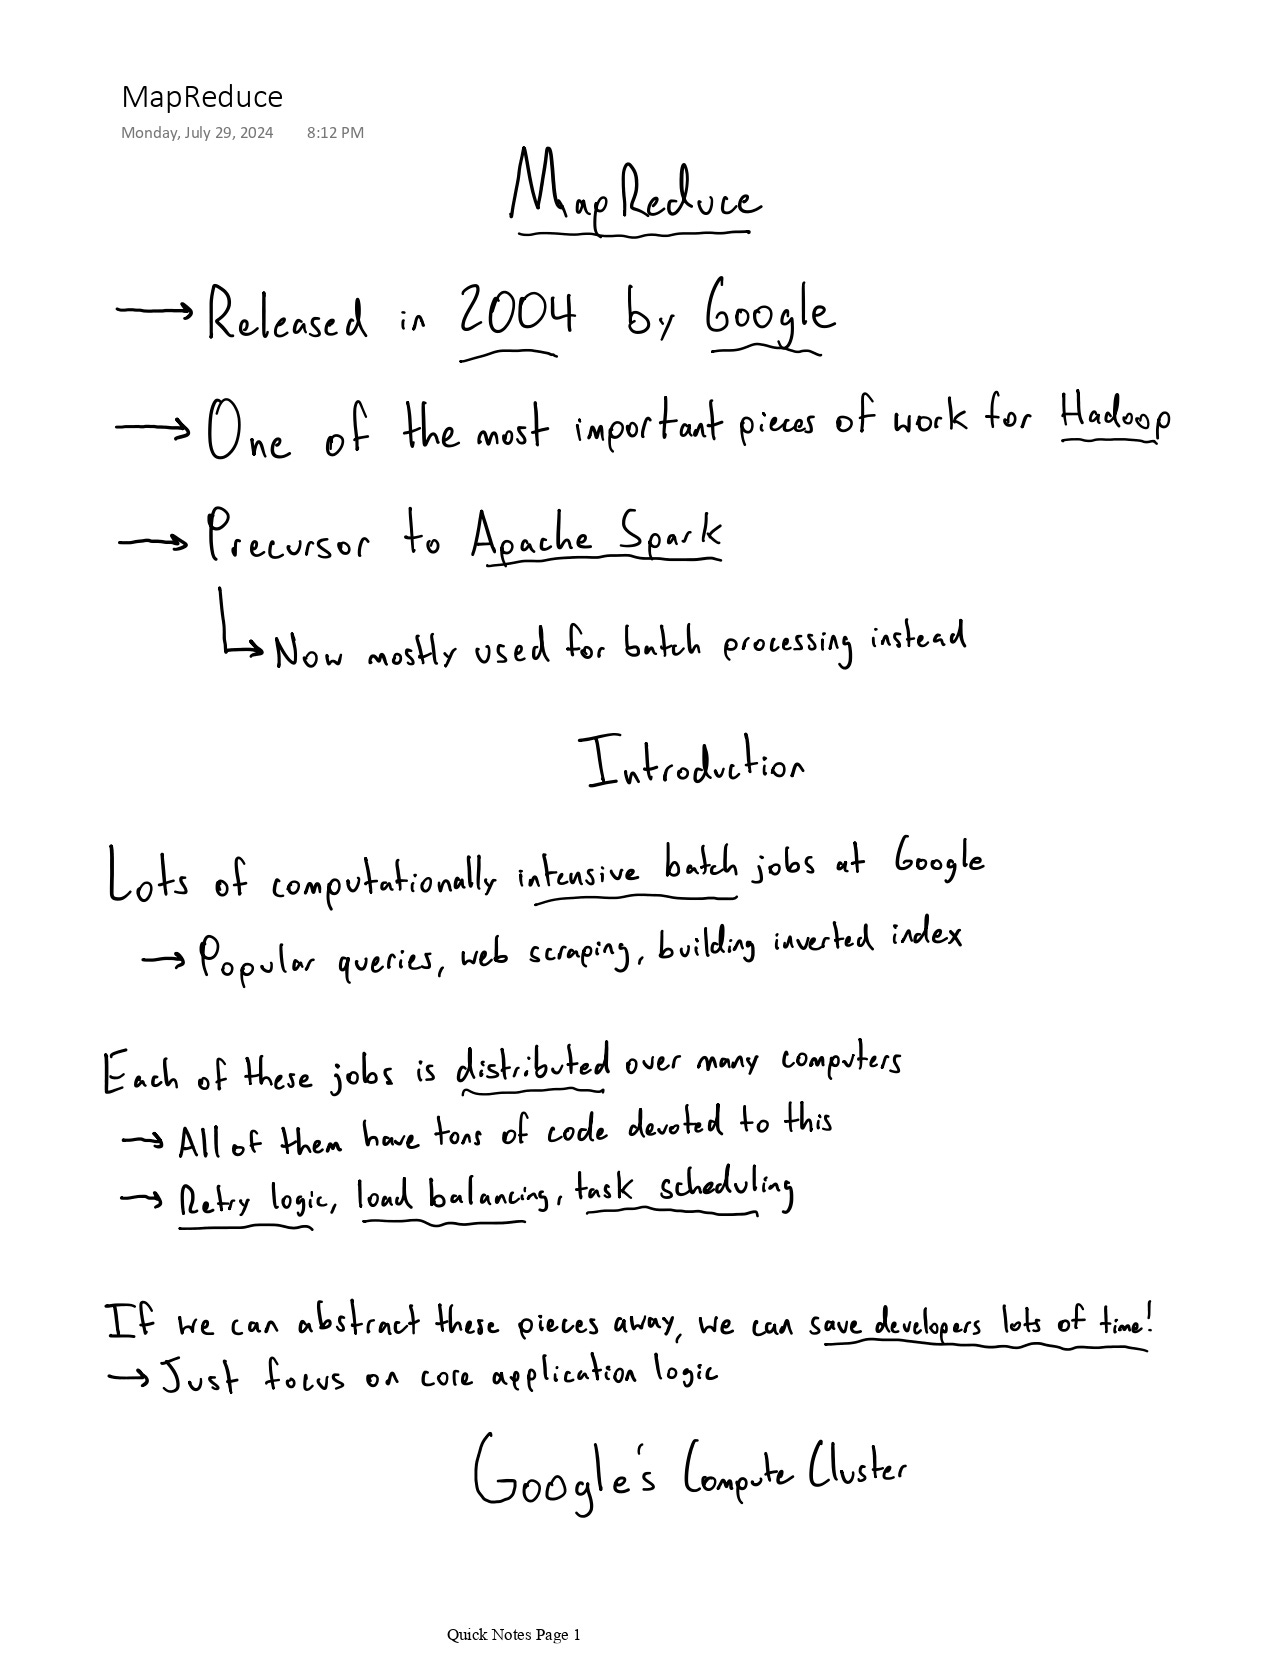 MapReduce
Monday, July 29, 2024 8:12 PM
MapReduce
→ Released in 2004 by Google
→ One of the most important pieces of work for Hadoop
→ Precursor to Apache Spark
↳ Now mostly used for batch processing instead
Introduction
Lots of computationally intensive batch jobs at Google
→ Popular queries, web scraping, building inverted index
Each of these jobs is distributed over many computers
→ All of them have tons of code devoted to this
→ Retry logic, load balancing, task scheduling
If we can abstract these pieces away, we can save developers lots of time!
→ Just focus on core application logic
Google's Compute Cluster
Quick Notes Page 1